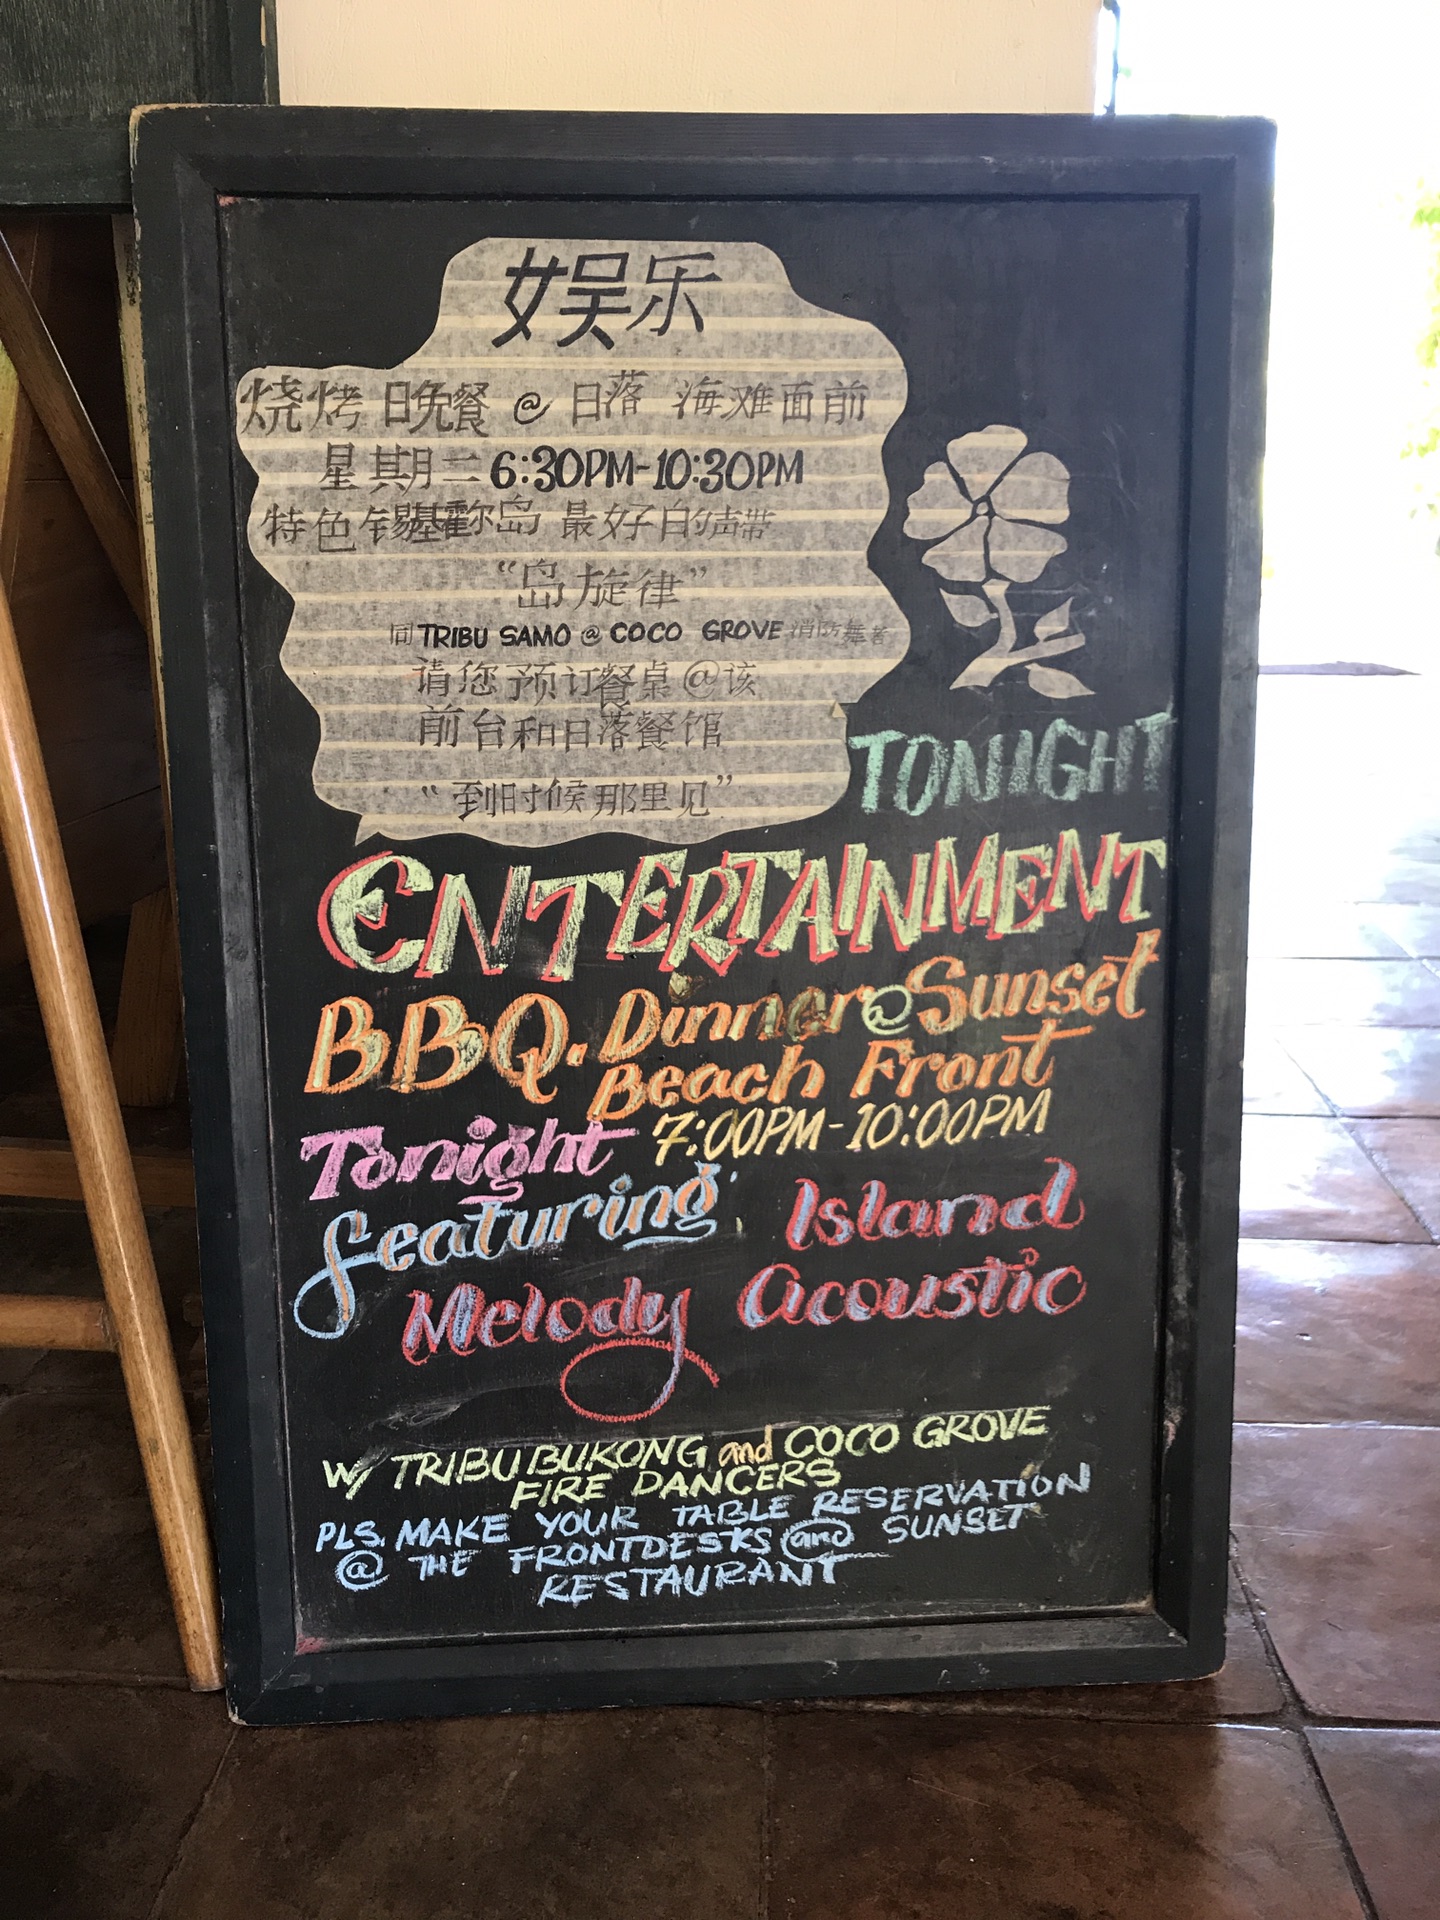 娱乐
烧烤 晚餐 @ 日落 海难面前
星期二 6:30PM-10:30PM
特色 锡基霍尔岛 最好的声带
“岛旋律”
同 TRIBU SAMO @ COCO GROVE 消防舞者
请您预订餐桌 @ 该
前台和日落餐馆
“到时候那里见”
TONIGHT
ENTERTAINMENT
BBQ. Dinner @ Sunset
Beach Front
Tonight 7:00PM-10:00PM
featuring: Island
Melody Acoustic
W/ TRIBU BUKONG and COCO GROVE
FIRE DANCERS
PLS. MAKE YOUR TABLE RESERVATION
@ THE FRONTDESKS and SUNSET
RESTAURANT